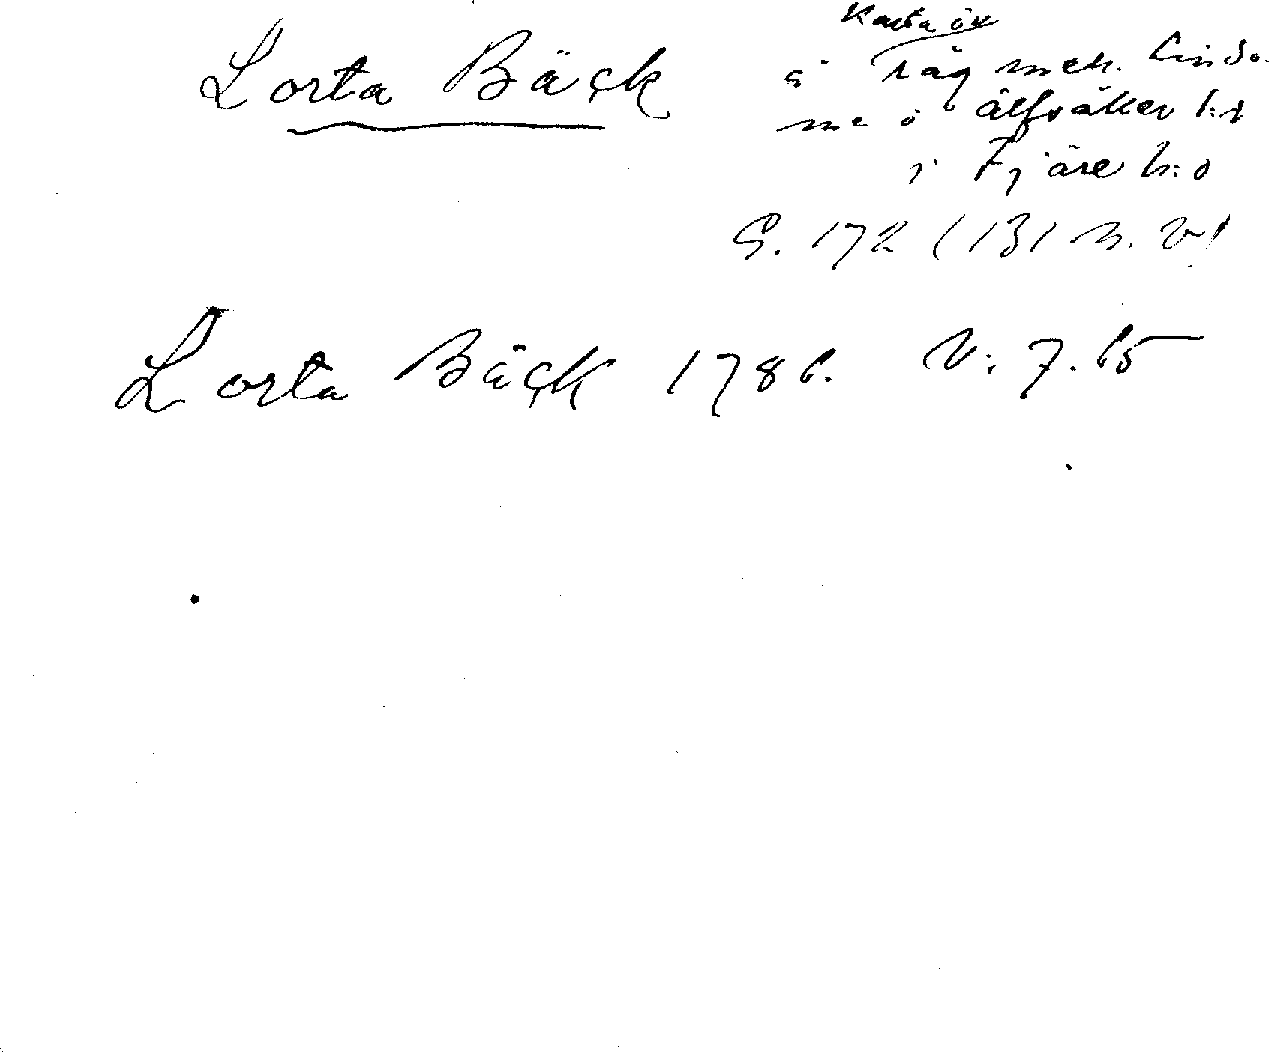 Lorta Bäck
Karta öv
å råg mell. Lindo-
me o älfsåker
i Fjäre h:d
S. 172 (131 n. v)
Lorta Bäck 1786. V: 7. 65